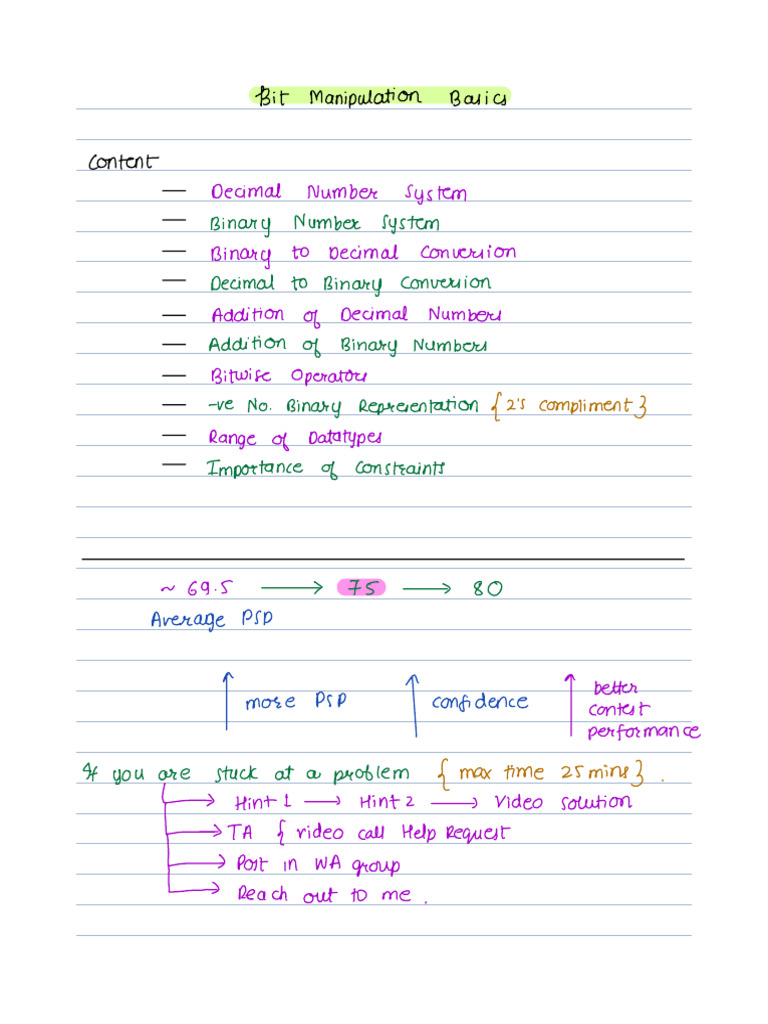 Bit Manipulation Basics
Content
— Decimal Number System
— Binary Number System
— Binary to Decimal Conversion
— Decimal to Binary Conversion
— Addition of Decimal Numbers
— Addition of Binary Numbers
— Bitwise Operators
— -ve No. Binary Representation {2's compliment}
— Range of Datatypes
— Importance of Constraints
~ 69.5 → 75 → 80
Average PSP
↑ more PSP ↑ confidence ↑ better contest performance
If you are stuck at a problem {max time 25 mins}.
→ Hint 1 → Hint 2 → Video solution
→ TA { video call Help Request
→ Post in WA group
→ Reach out to me.